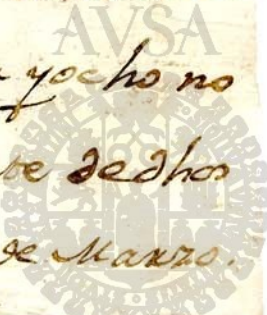 AVSA
yocho no
de dhos
de Marzo.